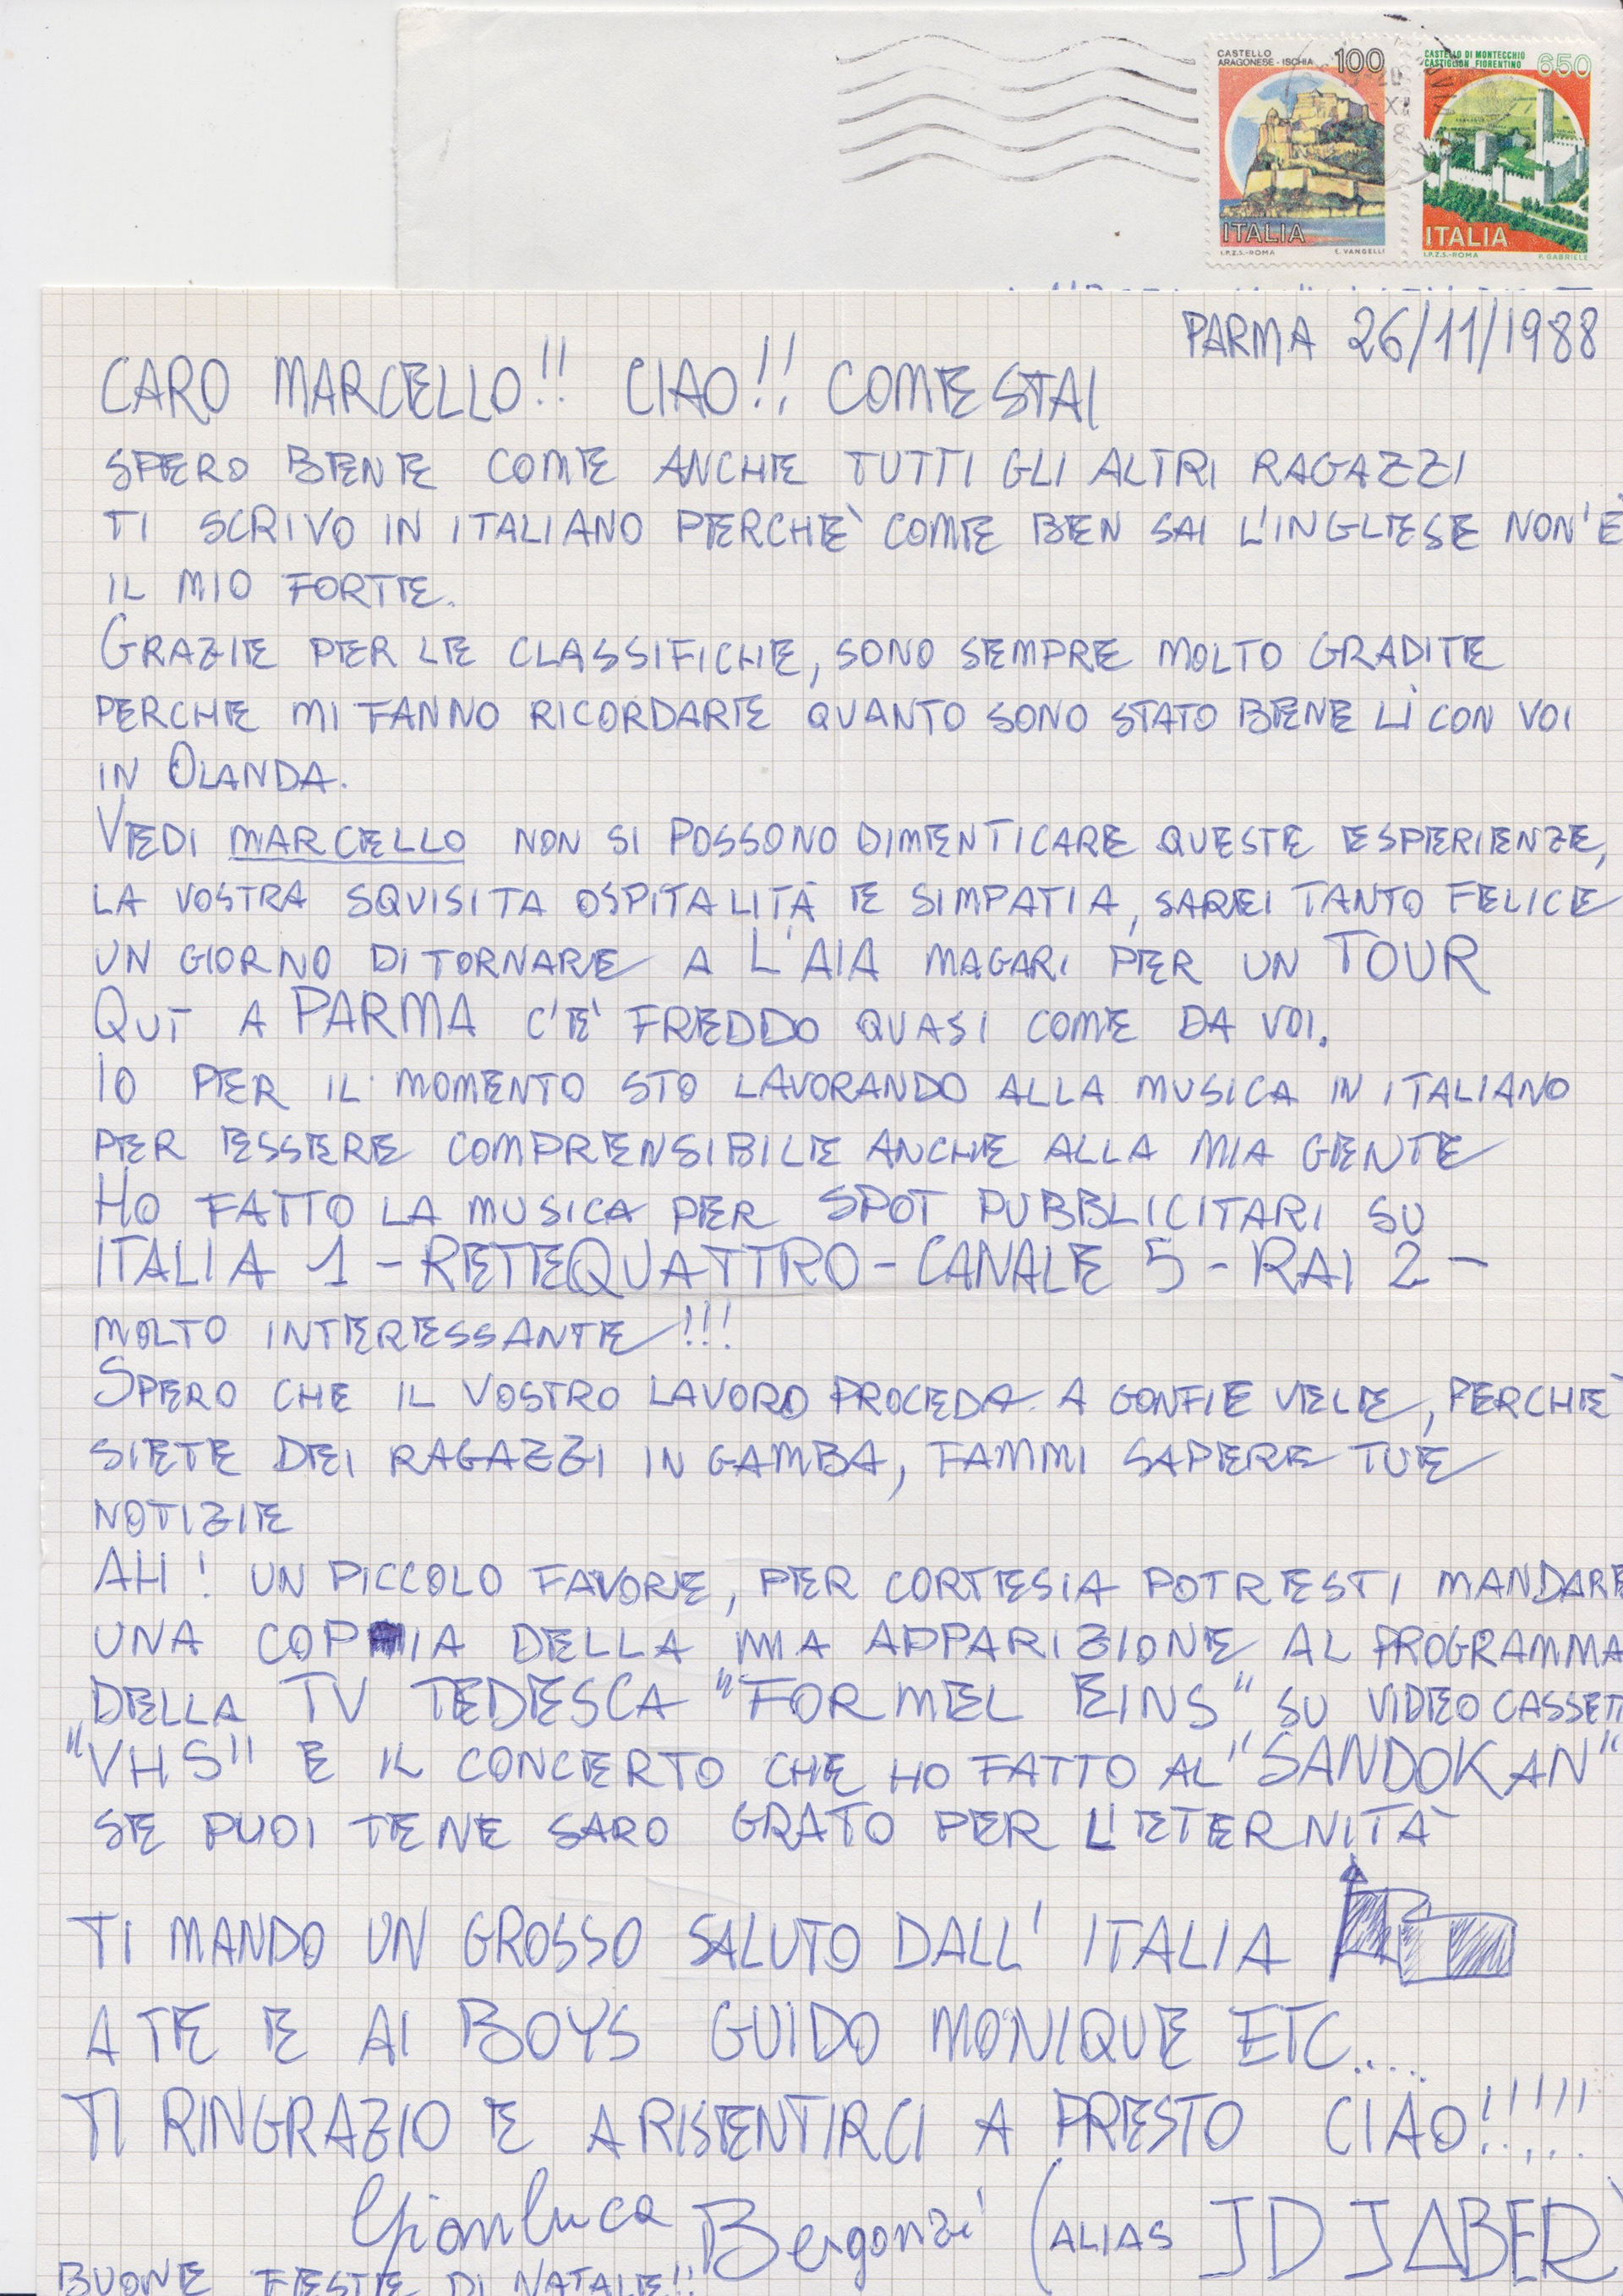 CASTELLO ARAGONESE - ISCHIA 100
ITALIA
I.P.Z.S.-ROMA E. VANGELLI
CASTELLO DI MONTECCHIO CASTIGLION FIORENTINO 650
ITALIA
I.P.Z.S.-ROMA P. GABRIELE
PARMA 26/11/1988
CARO MARCELLO!! CIAO!! COME STAI
SPERO BENE COME ANCHE TUTTI GLI ALTRI RAGAZZI
TI SCRIVO IN ITALIANO PERCHE' COME BEN SAI L'INGLESE NON'E
IL MIO FORTE.
GRAZIE PER LE CLASSIFICHE, SONO SEMPRE MOLTO GRADITE
PERCHE MI FANNO RICORDARE QUANTO SONO STATO BENE LÌ CON VOI
IN OLANDA.
VEDI MARCELLO NON SI POSSONO DIMENTICARE QUESTE ESPERIENZE,
LA VOSTRA SQUISITA OSPITALITÀ E SIMPATIA, SAREI TANTO FELICE
UN GIORNO DI TORNARE A L'AIA MAGARI PER UN TOUR
QUI A PARMA C'E' FREDDO QUASI COME DA VOI.
IO PER IL MOMENTO STO LAVORANDO ALLA MUSICA IN ITALIANO
PER ESSERE COMPRENSIBILE ANCHE ALLA MIA GENTE
HO FATTO LA MUSICA PER SPOT PUBBLICITARI SU
ITALIA 1 - RETEQUATTRO - CANALE 5 - RAI 2 -
MOLTO INTERESSANTE!!!
SPERO CHE IL VOSTRO LAVORO PROCEDA A GONFIE VELE, PERCHE'
SIETE DEI RAGAZZI IN GAMBA, FAMMI SAPERE TUE
NOTIZIE
AH! UN PICCOLO FAVORE, PER CORTESIA POTRESTI MANDARE
UNA COPIA DELLA MIA APPARIZIONE AL PROGRAMMA
DELLA TV TEDESCA "FORMEL EINS" SU VIDEO CASSETT
"VHS" E IL CONCERTO CHE HO FATTO AL "SANDOKAN"
SE PUOI TE NE SARO GRATO PER L'ETERNITÀ
TI MANDO UN GROSSO SALUTO DALL' ITALIA
A TE E AI BOYS GUIDO MONIQUE ETC.....
TI RINGRAZIO E A RISENTIRCI A PRESTO CIAO!!!!!
Gianluca Bergonzi (ALIAS JD JABER)
BUONE FESTE DI NATALE!!